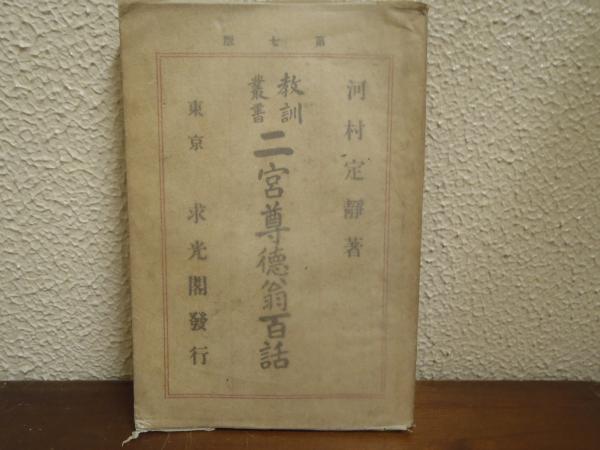 第七版
河村定靜著
教訓
叢書
二宮尊德翁百話
東京 求光閣發行